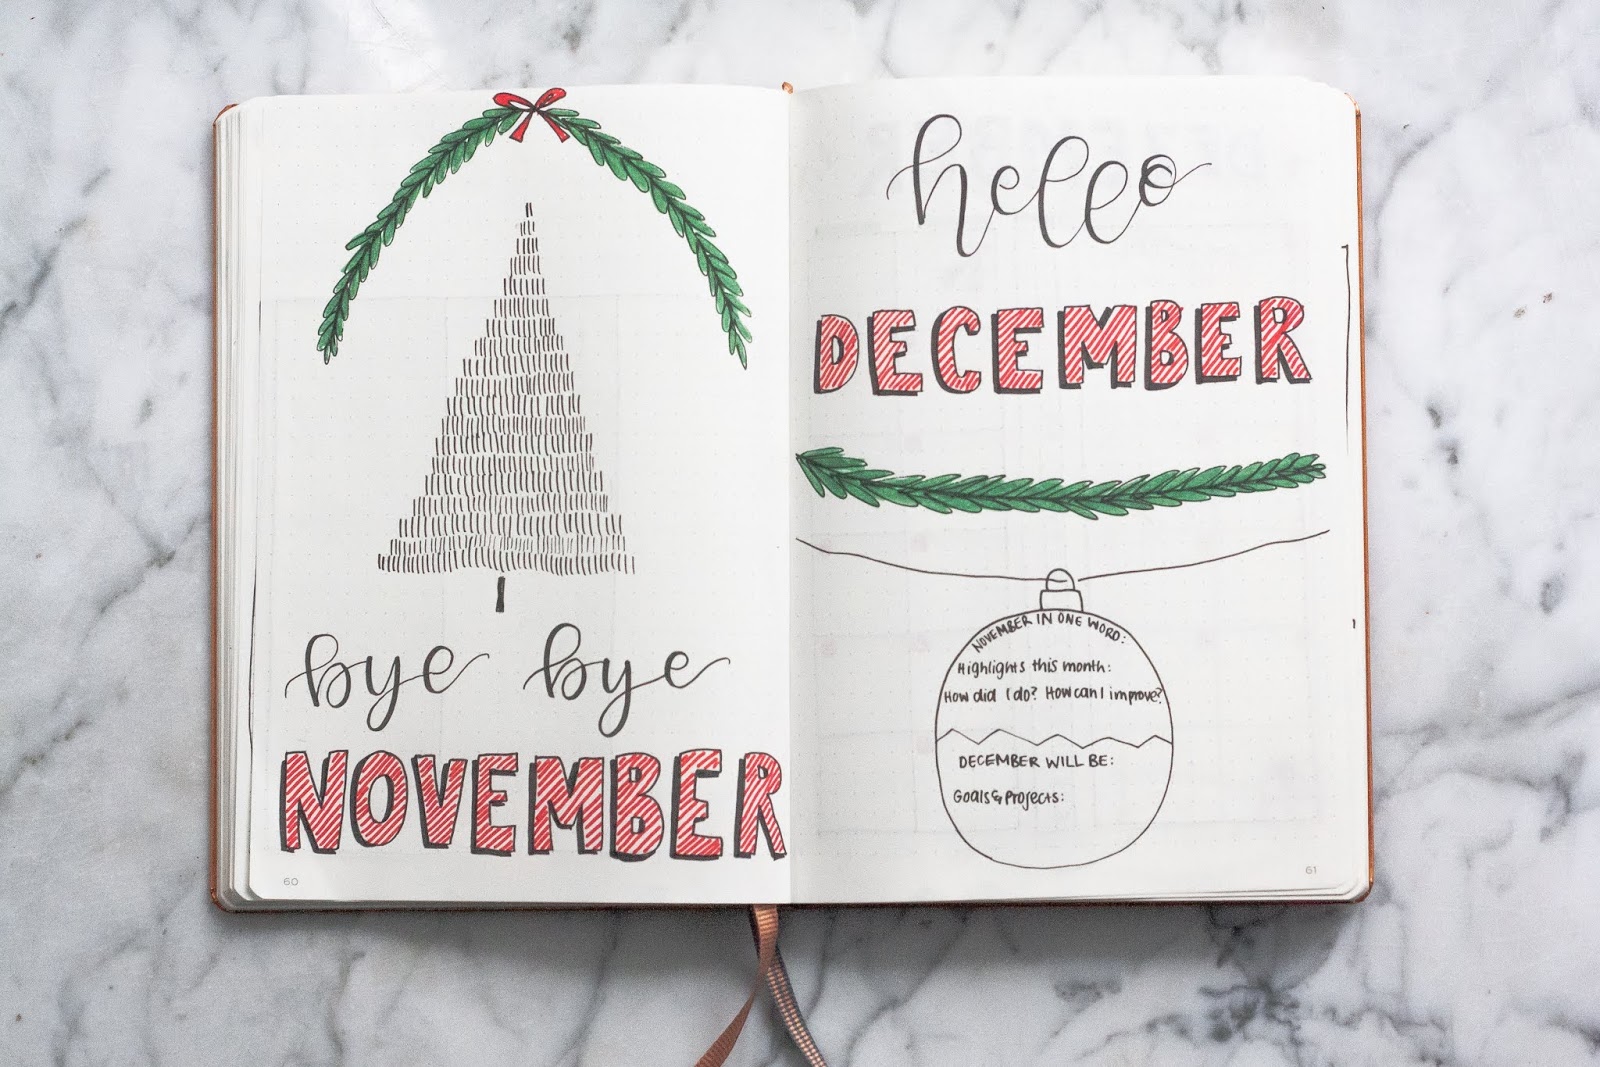 bye bye
NOVEMBER
60
hello
DECEMBER
NOVEMBER IN ONE WORD:
Highlights this month:
How did I do? How can I improve?
DECEMBER WILL BE:
Goals & Projects:
61